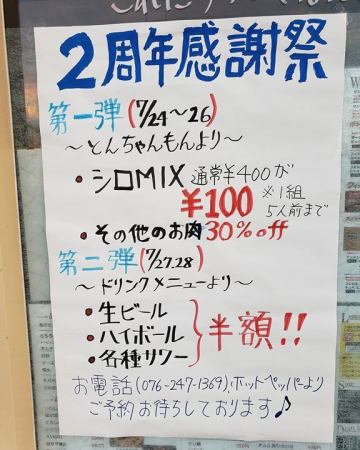 2周年感謝祭
第一弾(7/24~26)
~とんちゃんもんより~
・シロMIX 通常¥400が
¥100 ※1組5人前まで
・その他のお肉30%off
第二弾(7/27,28)
~ドリンクメニューより~
・生ビール
・ハイボール
・各種サワー
半額!!
お電話(076-247-1369),ホットペッパーより
ご予約お待ちしております♪